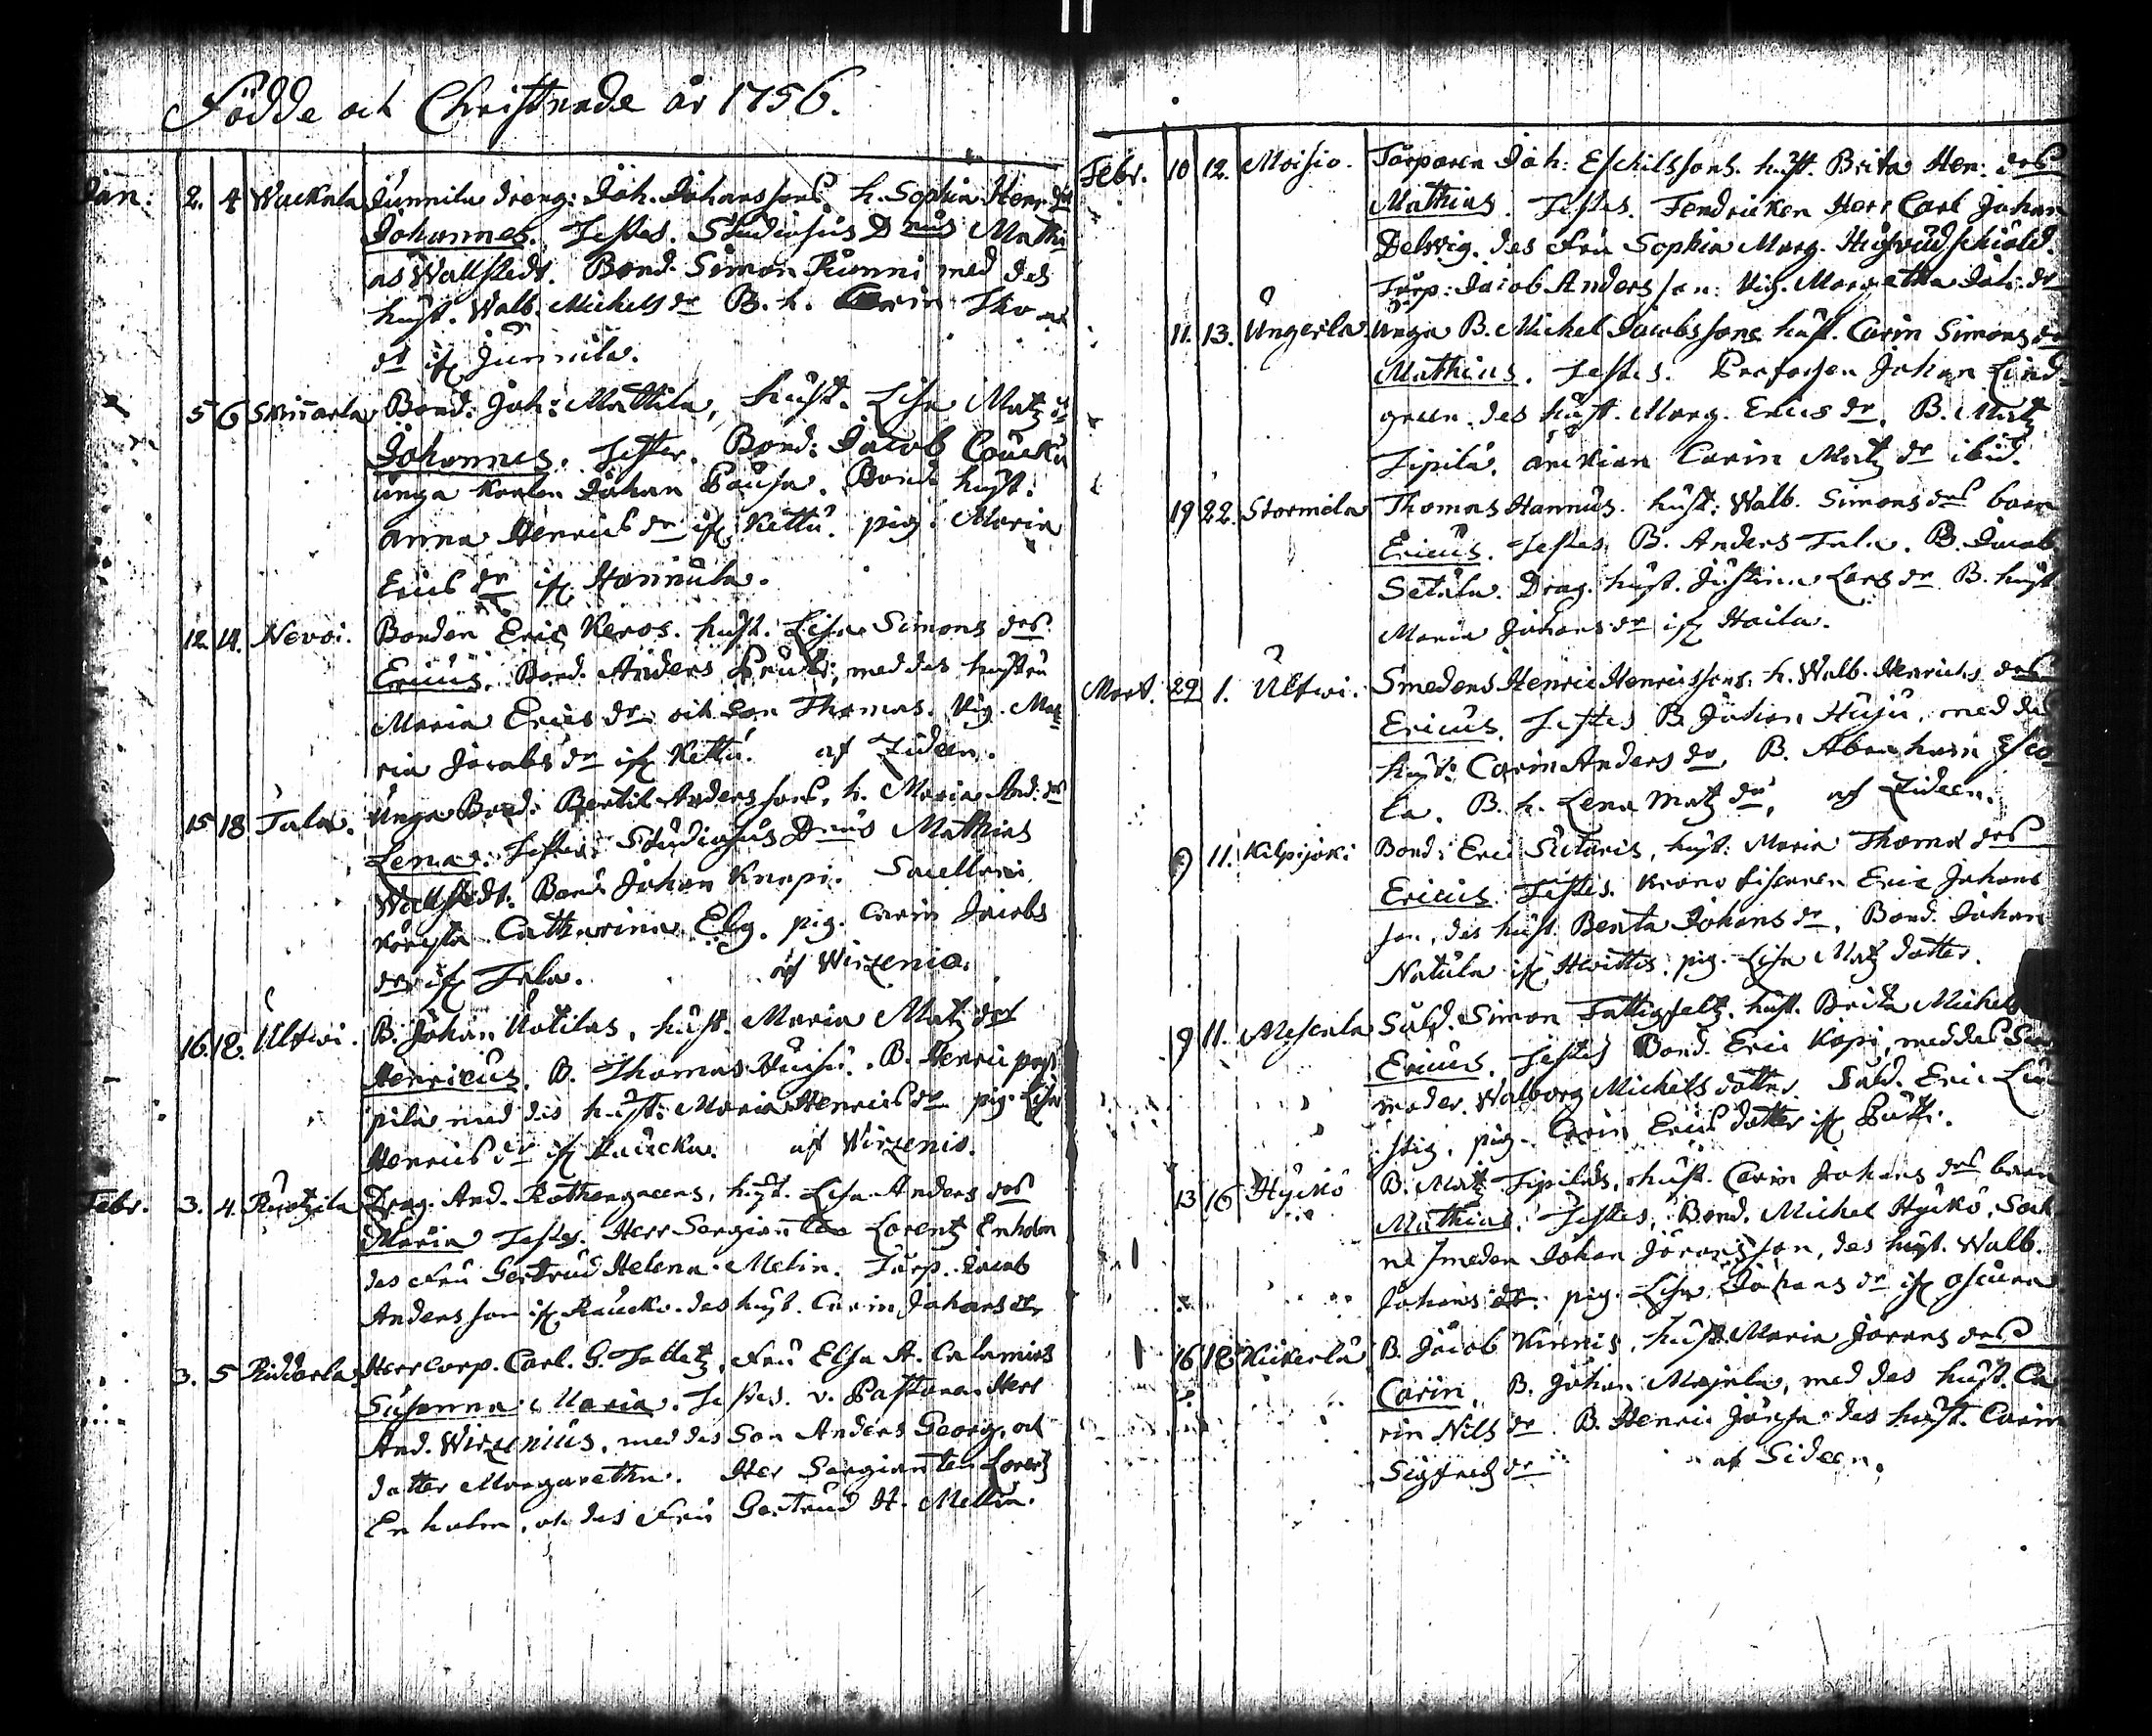 Födde och Christnade år 1756.
Jan: 2. 4 Wackala Junnila dreng: Joh. Johanssons h. Sophia Henr. dr
Johannes. Testes. Studiosus Dnus Mathi
as Wallstedt. Bond. Simon Runni med des
hust. Walb. Michels dr B. h. Carin Tho
dr if Junnila.
5 6 Skinnarla Bond: Joh: Mattila, hust. Lisa Matz
Johannes. Testes. Bond: Jacob Coucku
unga Karlen Johan Pausa. Bond. hust.
Anna Henrics dr if Kettu. pig. Maria
Erics dr if Hannula.
12. 14. Nevoi. Bonden Eric Keros. hust. Lisa Simons drs
Ericus. Bond. Anders Pruki, med des hustru
Maria Erics dr och Son Thomas. Pig. Ma
ria Jacobs dr if Kettu. af Zideen.
15 18 Tala. Unga Bond. Bertil Anderssons, h. Maria And: drs
Lena. Testes. Studiosus Dnus Mathias
Wallstedt. Bond Johan Knapi.
Catharina Elg. pig. Carin Jacobs
dr if Tala. af Wirzenio.
16. 18. Ultwi. B. Johan Uotilas, hust. Maria Matz drs
Henricus. B. Thomas Huisu. B. Henric pap
pila med des hust: Maria Henrics dr pig. Lisa
Henrics dr if Raucka. af Wirzenio.
Febr. 3. 4. Ruotzila Drag. And. Rothengreens, hust. Lisa Anders drs
Maria Testes. Herr Sergianten Lorentz Enholm
des Fru Gertrud Helena Melin. Torp. Jacob
Andersson if Raucka. des hust. Carin Johans dr
3. 5 Riddarla. Herr Corp. Carl. G. Talletz, Fru Elsa A. Calamius
Susanna Maria. Testes. v. Pastoren Herr
And. Wirzenius, med des Son Anders Georg, och
dotter Margaretha. Her Sergianten Lorentz
Enholm, och des Fru Gertrud H. Mellin.
Febr. 10 12. Moisio. Torparen Joh: Eskilssons. hust. Brita Hen: drs
Mathias. Testes. Fendricken Herr Carl Johan
Delwig. des Fru Sophia Marg.
Torp: Jacob Andersson: Pig. Margetha Joh: dr
11. 13. Ungerla. Unga B. Michel Jacobssons hust. Carin Simons dr
Mathias. Testes. Profossen Johan Lind
green. des hust. Marg. Erics dr. B. Matz
Sipilä. änkian Carin Matz dr ibid.
19 22. Stormela Thomas Hannus. hust: Walb. Simons drs barn
Ericus. Testes B. Anders Tala. B. Jacob
Setala. Drag. hust. Justina Lars dr B. hust
Maria Johans dr if Haila.
Mart. 29 1. Ultwi. Smedens Henric Henricssons. h. Walb. Henrichs drs
Ericus. Testes B. Johan Huju, med des
hust: Carin Anders dr, B. Abraham Esco
la. B. h. Lena Matz dr, af Zideen.
9 11. Kilpijoki Bond: Eric Sutaris, hust: Maria Thoma drs
Ericus. Testes. Krono fiscaren Eric Johans
son, des hust. Berita Johans dr, Bond. Johan
Natula if Hwittis. pig. Lisa Matz dotter.
9 11. Mescala Sald. Simon Fattigfeltz. hust. Brita Michels
Ericus. Testes Bond. Eric Kopi, med des
moder. Walborg Michels dotter. Sald. Eric
stig. pig. Carin Erics dotter if
13 16 Hyckö B. Matz Sipiläs, hust. Carin Johans drs barn
Mathias. Testes. Bond. Michel Hyckö, Sock
ne smeden Johan Jöransson, des hust. Walb.
Johans dr. pig. Lisa Johans dr if
16 18 Kickerlä B. Jacob Kinnis, hust. Maria Jörans drs
Carin. B. Johan Majala, med des hust. Ca
rin Nils dr B. Henric des hust. Carin
Sigfreds dr af Sideen.